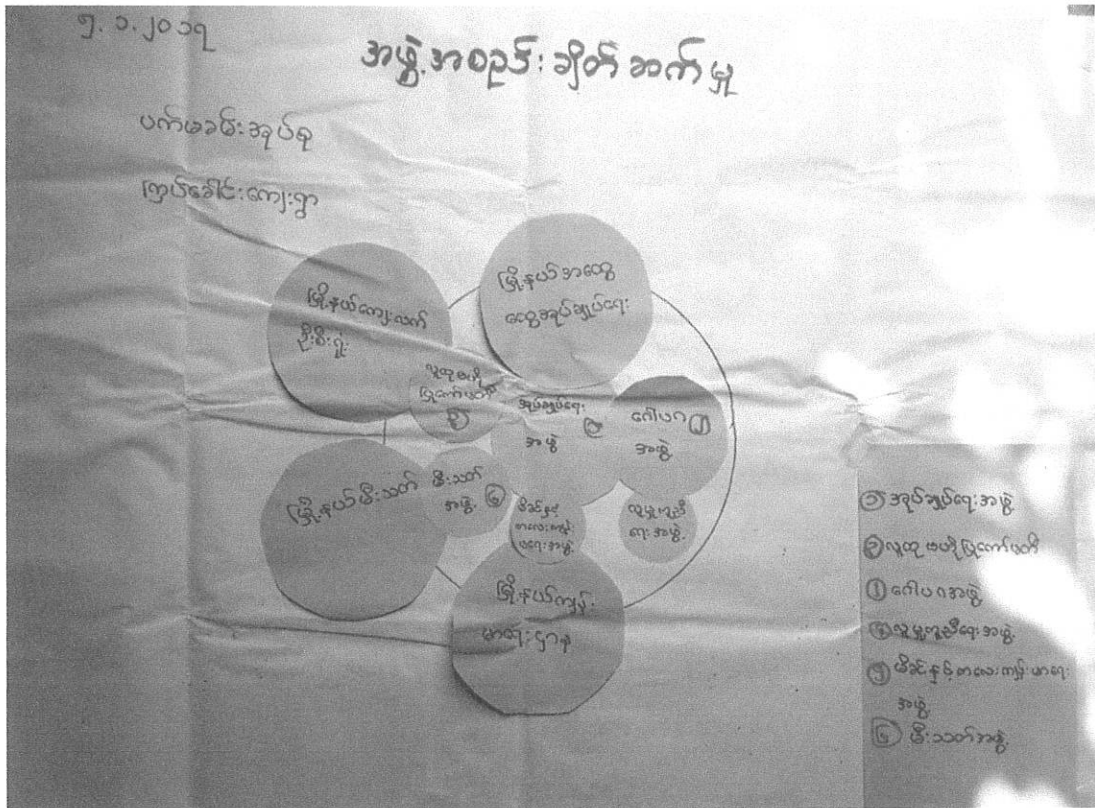 ၅.၁.၂၀၁၇
အဖွဲ့အစည်းချိတ်ဆက်မှု
ပက်မခမ်းအုပ်စု
ကြပ်ခေါင်းကျေးရွာ
မြို့နယ်အထွေ
ထွေအုပ်ချုပ်ရေး
မြို့နယ်ကျေးလက်
ဦးစီးရုံး
လူထုဗဟို
ပြုကော်မတီ
၂
အုပ်ချုပ်ရေး
အဖွဲ့
၁
ဂေါပက
အဖွဲ့
၃
မြို့နယ်မီးသတ်
မီးသတ်
အဖွဲ့
၆
မိခင်နှင့်
ကလေးကျန်း
မာရေးအဖွဲ့
လူမှုကူညီ
ရေးအဖွဲ့
မြို့နယ်ကျန်း
မာရေးဌာန
၁ အုပ်ချုပ်ရေးအဖွဲ့
၂ လူထုဗဟိုပြုကော်မတီ
၃ ဂေါပကအဖွဲ့
၄ လူမှုကူညီရေးအဖွဲ့
၅ မိခင်နှင့်ကလေးကျန်းမာရေး
အဖွဲ့
၆ မီးသတ်အဖွဲ့